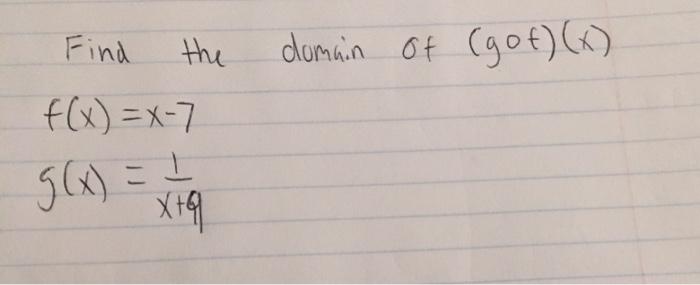 Find the domain of (gof)(x)
f(x) = x-7
g(x) = 1/x+9